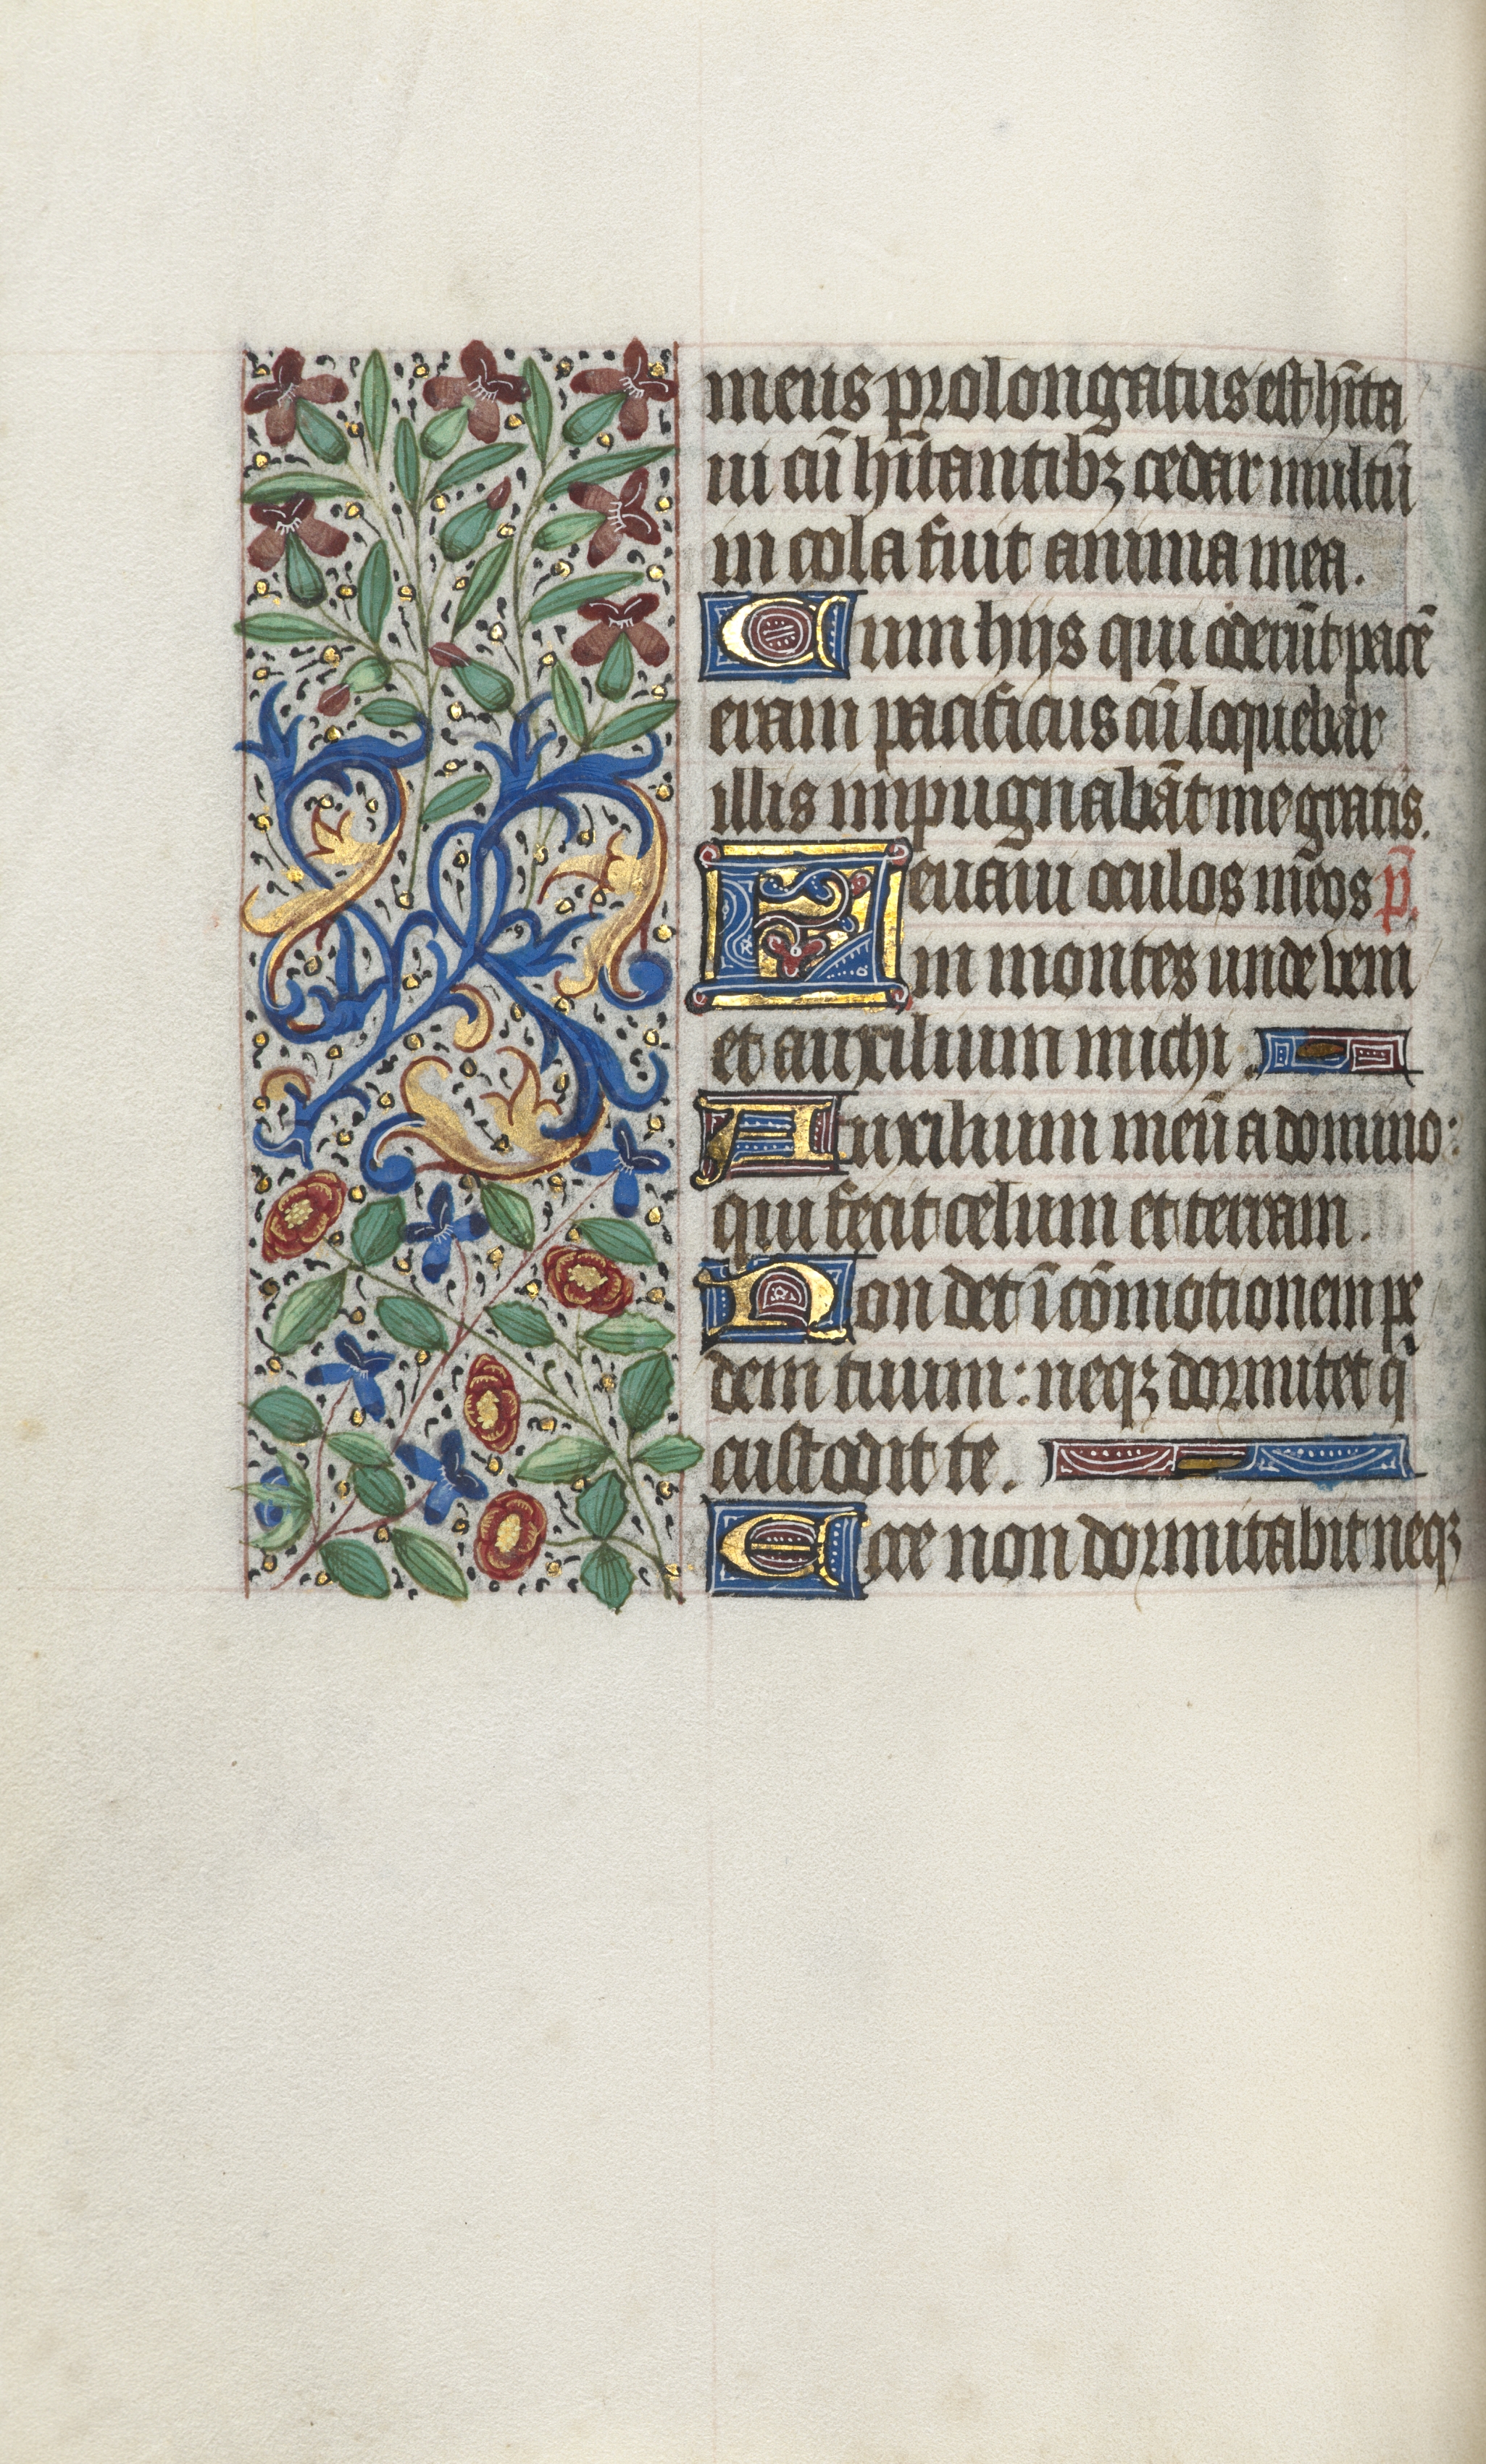 meus prolongatus est hīta
ui cū hītantibꝫ cedar multū
incola fuit anima mea.
Cum hijs qui oderūt pacē
eram pacificus cū loquebar
illis inpugnabāt me gratis.
Leuaui oculos meos p̄.
in montes unde veni
et auxilium michi.
Auxilium meū a domino:
qui fecit celum et terram.
Non det ī cōmotionem pe
dem tuum: neqꝫ dormitet q̄
custodit te.
Ecce non dormitabit neqꝫ